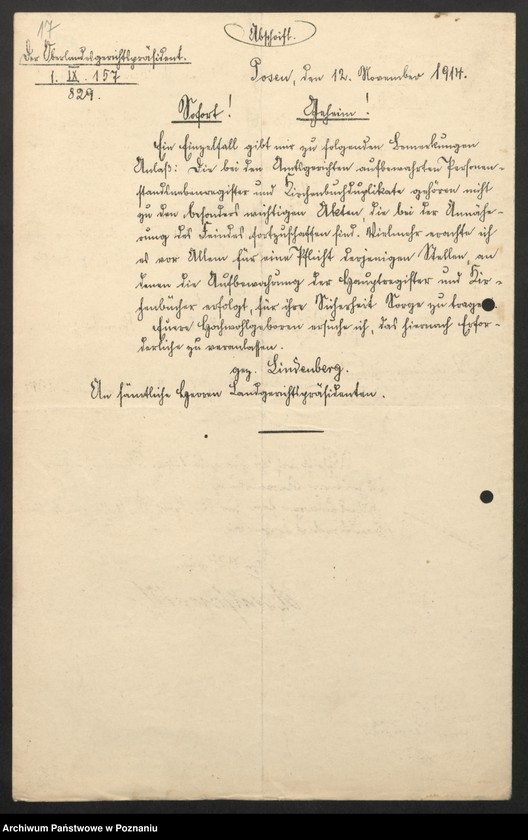 17
Abschrift.
Der Oberlandesgerichtspräsident.
I. IX. 157
829.
Posen, den 12. November 1914.
Sofort! Geheim!
Ein Einzelfall gibt mir zu folgenden Bemerkungen
Anlaß: Die bei den Amtsgerichten aufbewahrten Personen-
standsnebenregister und Kirchenbuchduplikate gehören nicht
zu den besonders wichtigen Akten, die bei der Annähe-
rung des Feindes fortzuschaffen sind. Vielmehr erachte ich
es vor Allem für eine Pflicht derjenigen Stellen, an
denen die Aufbewahrung der Hauptregister und Kir-
chenbücher erfolgt, für ihre Sicherheit Sorge zu tragen.
Euere Hochwohlgeboren ersuche ich, das hiernach Erfor-
derliche zu veranlassen.
gez. Lindenberg.
An sämtliche Herren Landgerichtspräsidenten.
Archiwum Państwowe w Poznaniu